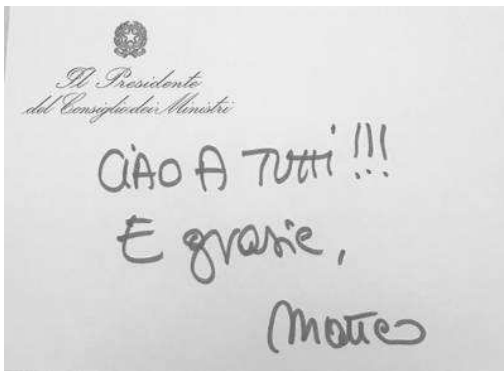 Il Presidente
del Consiglio dei Ministri
CIAO A TUTTI!!!
E grazie,
Matteo